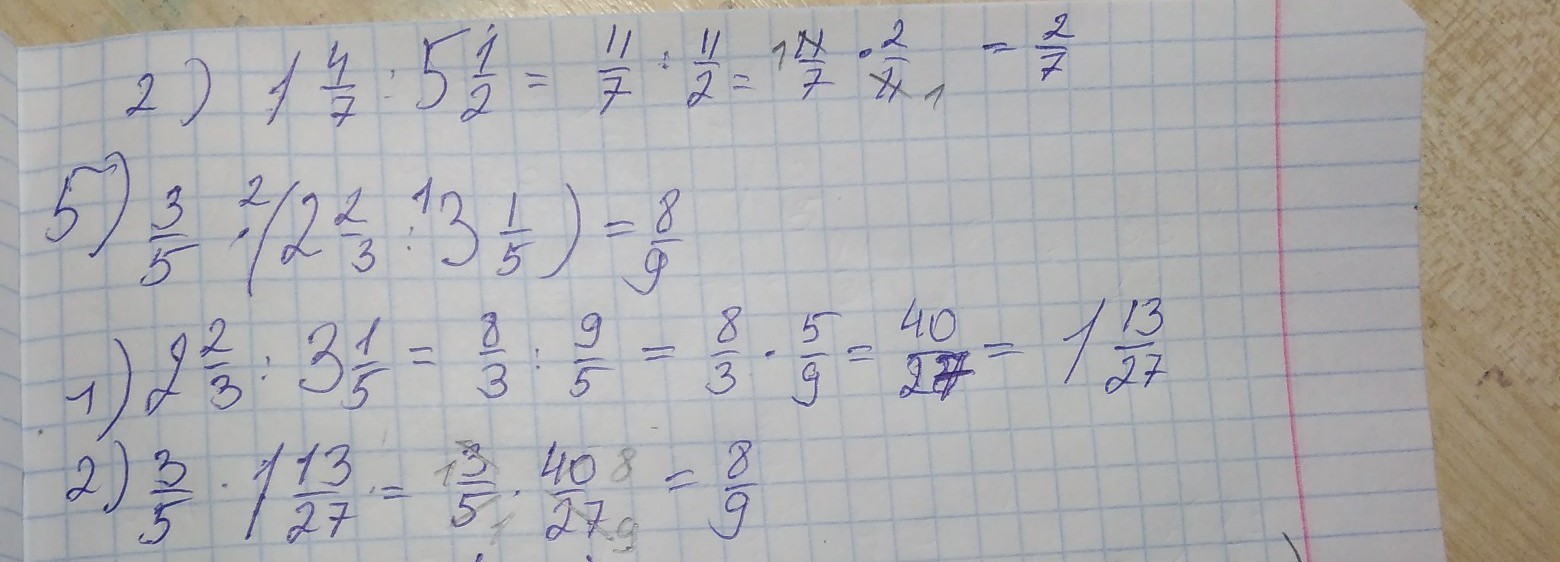 2) 1 4/7 : 5 1/2 = 11/7 : 11/2 = 1 11/7 · 2/11 1 = 2/7
5) 3/5 ·² (2 2/3 :¹ 3 1/5) = 8/9
1) 2 2/3 : 3 1/5 = 8/3 : 9/5 = 8/3 · 5/9 = 40/27 = 1 13/27
2) 3/5 · 1 13/27 = 1 3/5 1 · 40/27 8 9 = 8/9